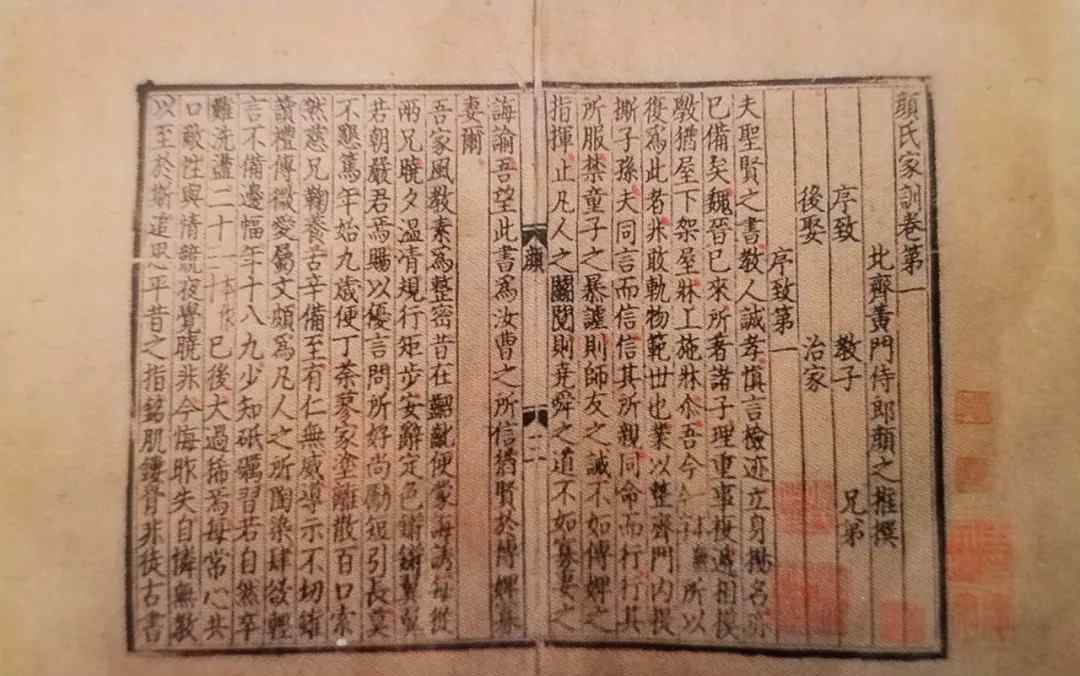 顔氏家訓卷第一
北齊黃門侍郎顔之推撰
序致 教子 兄弟
後娶 治家
序致第一
夫聖賢之書教人誠孝慎言檢迹立身揚名亦
已備矣魏晉已來所著諸子理重事複遞相模
斆猶屋下架屋牀上施牀尒吾今 所以
復爲此者非敢軌物範世也業以整齊門內提
撕子孫夫同言而信信其所親同命而行行其
所服禁童子之暴謔則師友之誡不如傅婢之
指揮止凡人之鬭鬩則堯舜之道不如寡妻之
誨諭吾望此書爲汝曹之所信猶賢於傅婢寡
妻爾
吾家風教素爲整密昔在齠齔便蒙誨誘每從
兩兄曉夕温凊規行矩步安辭定色鏘鏘翼翼
若朝嚴君焉賜以優言問所好尚勵短引長莫
不懇篤年始九歲便丁荼蓼家塗離散百口索
然慈兄鞠養苦辛備至有仁無威導示不切雖
讀禮傳微愛屬文頗爲凡人之所陶染肆欲輕
言不備邊幅年十八九少知砥礪習若自然卒
難洗盪二十一 已後大過稀焉每常心共
口敵性與情競夜覺曉非今悔昨失自憐無教
以至於斯追思平昔之指銘肌鏤骨非徒古書
顔
二